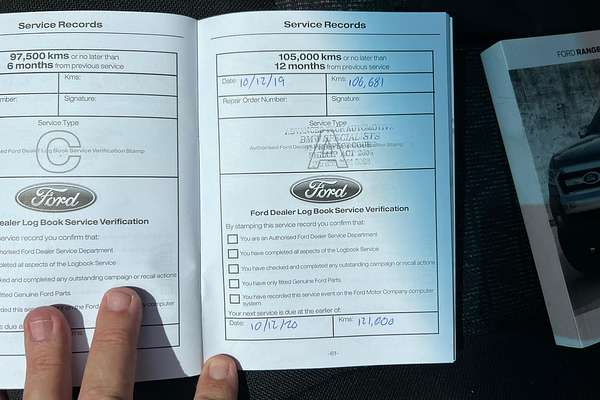 Service Records
97,500 kms or no later than
6 months from previous service
Kms:
mber:
Signature:
Service Type
C
ised Ford Dealer Log Book Service Verification Stamp
Ford
ealer Log Book Service Verification
service record you confirm that:
thorised Ford Dealer Service Department
pleted all aspects of the Logbook Service
cked and completed any outstanding campaign or recall actions
fitted Genuine Ford Parts.
rded this service event on the Ford
computer
is due at
Service Records
105,000 kms or no later than
12 months from previous service
Date: 10/12/19
Kms: 106,681
Repair Order Number:
Signature:
Service Type
A
Authorised Ford Dealer Log Book Service Verification Stamp
Ford
Ford Dealer Log Book Service Verification
By stamping this service record you confirm that:
You are an Authorised Ford Dealer Service Department
You have completed all aspects of the Logbook Service
You have checked and completed any outstanding campaign or recall actions
You have only fitted Genuine Ford Parts.
You have recorded this service event on the Ford Motor Company computer
system.
Your next service is due at the earlier of:
Date: 10/12/20
Kms: 121,000
-61-
FORD RANGE